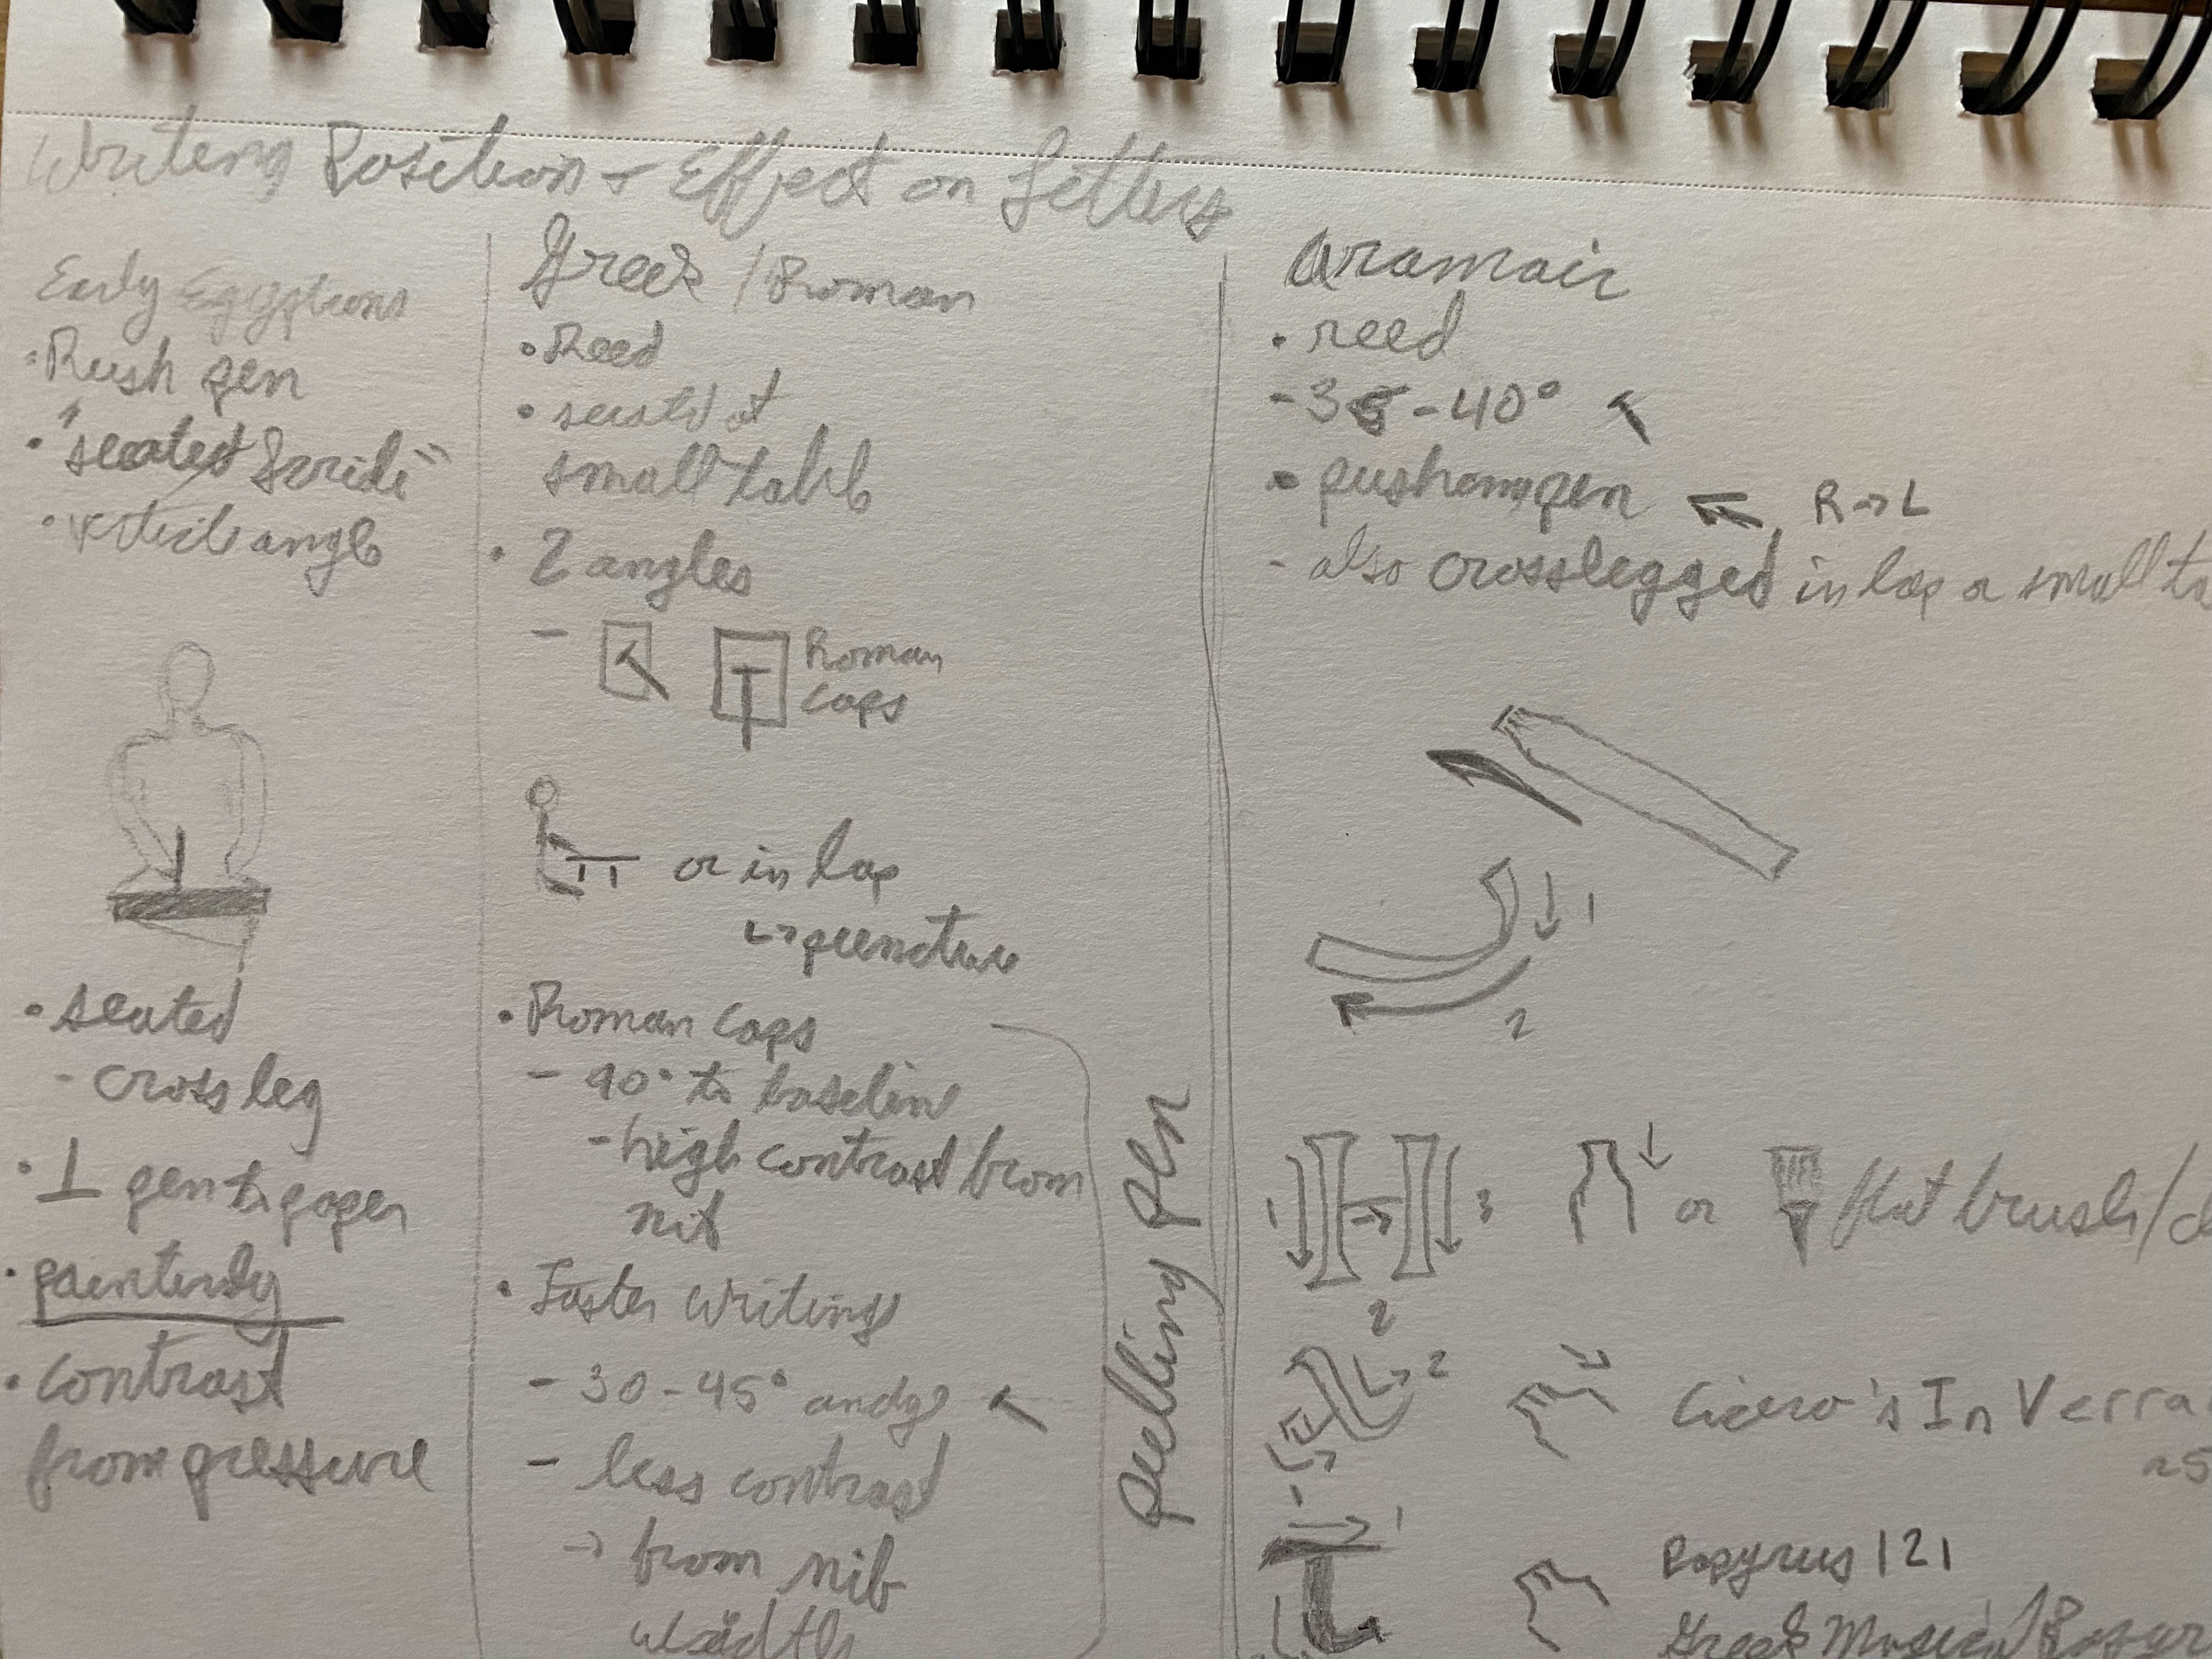 Writing Position + Effect on Letters
Early Egyptians
• Rush pen
• "seated Scribe"
• vertical angle
• seated
- cross leg
• ⊥ pen to paper
• painterly
• contrast
from pressure
Greek / Roman
• Reed
• seated at
small table
• 2 angles
-
Roman
Caps
or in lap
↳ puncture
• Roman Caps
- 90° to baseline
- high contrast from
nib
• Faster writing
- 30-45° angle
- less contrast
→ from nib
width
pulling pen
Aramaic
• reed
- 35-40°
• pushing pen ← R→L
- also crosslegged in lap or small ta
1
2
1 3 or flat brush/
2
2 Cicero's In Verra
1
1 Papyrus 121
Greek Musical Papyr